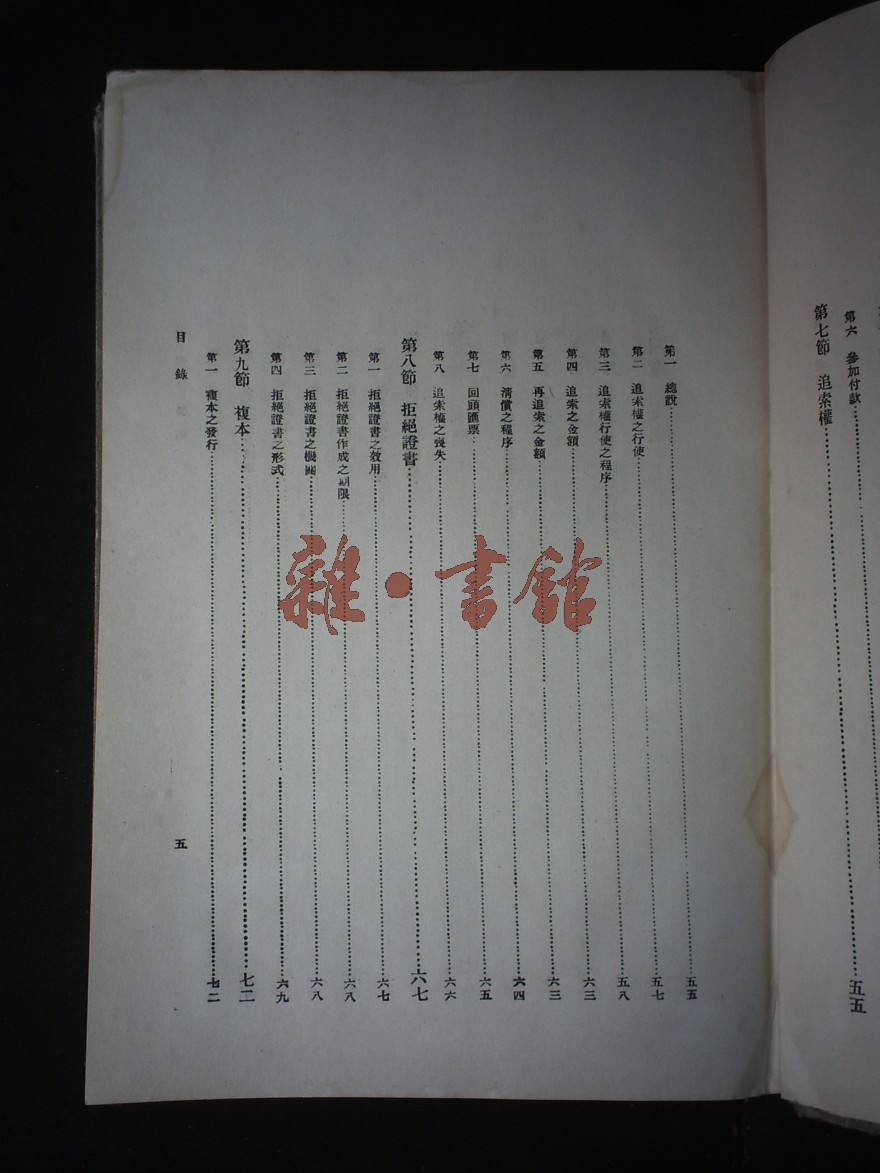 第六 參加付款
第七節 追索權 五五
第一 總說 五五
第二 追索權之行使 五七
第三 追索權行使之程序 五八
第四 追索之金額 六三
第五 再追索之金額 六三
第六 清償之程序 六四
第七 回頭匯票 六五
第八 追索權之喪失 六六
第八節 拒絕證書 六七
第一 拒絕證書之效用 六七
第二 拒絕證書作成之期限 六八
第三 拒絕證書之機關 六八
第四 拒絕證書之形式 六九
第九節 複本 七二
第一 複本之發行 七二
目錄
五
雜·書館